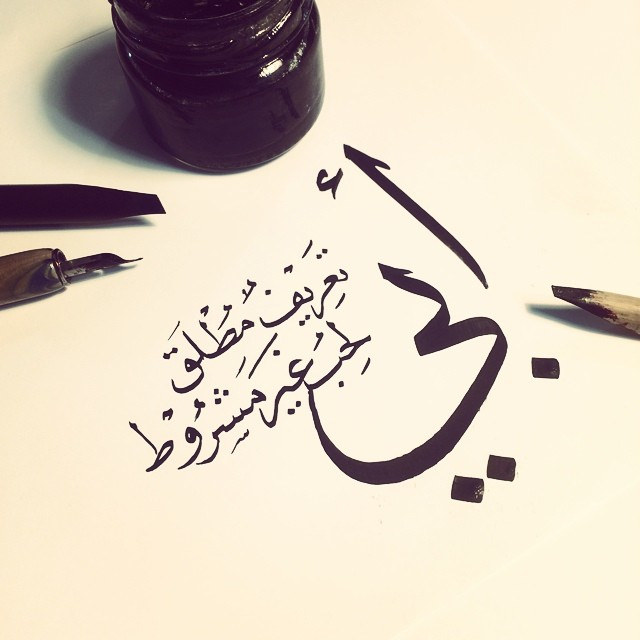 أبي
تعريف مُطْلَق
لِحُب غير مشرُوط